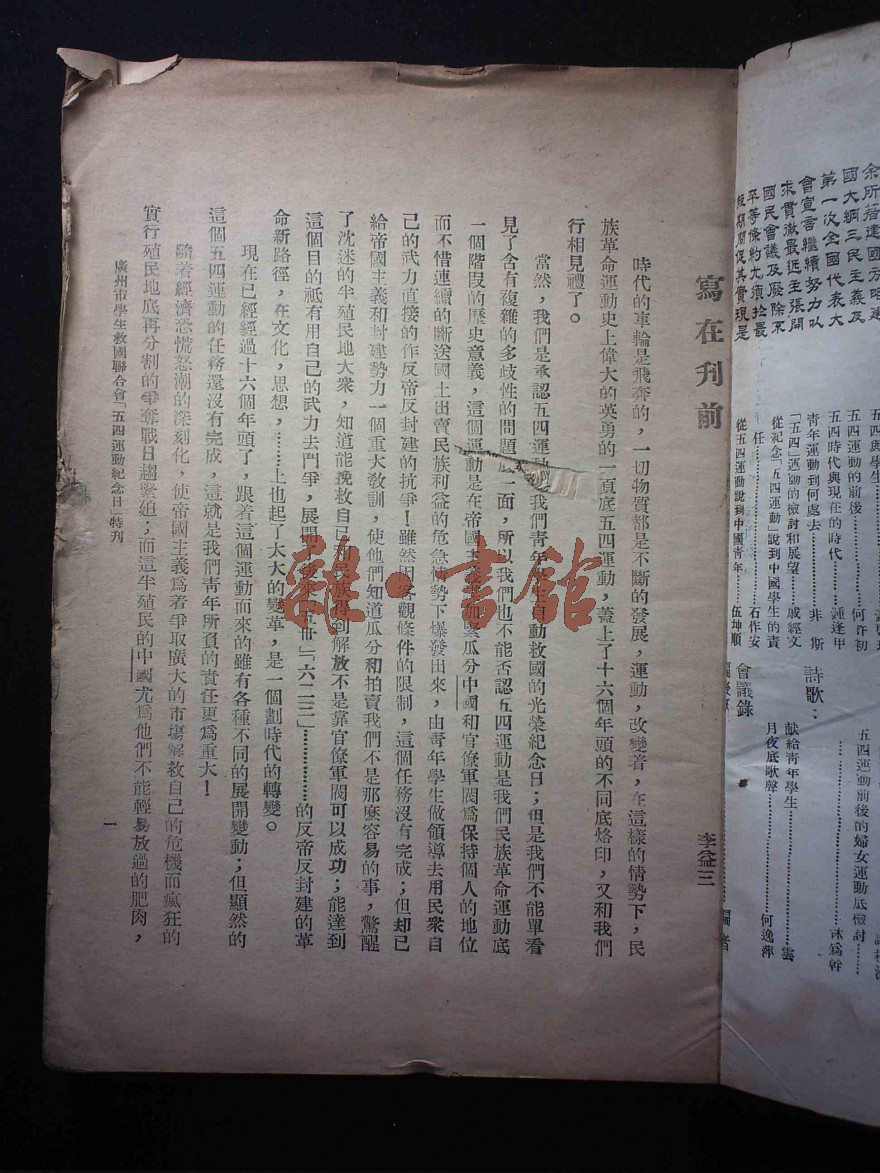 余所著建國方略建
國大綱三民主義及
第一次全國代表大
會宣言繼續努力以
求貫徹最近主張開
國民會議及廢除不
平等條約尤須於最
短期間促其實現是
五四運動的前後
何許初
五四時代與現在的時代
鍾逢甲
青年運動到何處去
非斯
「五四」運動的檢討和展望
戚經文
從紀念「五四運動」說到中國學生的責
任
石作安
從五四運動說到中國青年
伍坤順
五四運動前後的婦女運動底檢討
林爲幹
詩歌：
献給青年學生
雲
月夜底歌聲
何逸萍
會議錄
編者
寫在刋前
李益三
時代的車輪是飛奔的，一切物質都是不斷的發展，運動，改變着，在這樣的情勢下，民
族革命運動史上偉大的英勇的一頁底五四運動，蓋上了十六個年頭的不同底烙印，又和我們
行相見禮了。
當然，我們是承認五四運動是我們青年學生自動救國的光榮紀念日；但是我們不能單看
見了含有複雜的多歧性的問題底一面，所以我們也不能否認五四運動是我們民族革命運動底
一個階段的歷史意義，這個運動是在帝國主義者加緊瓜分中國和官僚軍閥爲保持個人的地位
而不惜連續的斷送國土出賣民族利益的危急情勢下爆發出來，由青年學生做領導去用民衆自
己的武力直接的作反帝反封建的抗爭！雖然因客觀條件的限制，這個任務沒有完成；但却已
給帝國主義和封建勢力一個重大敎訓，使他們知道瓜分和拍賣我們不是那麽容易的事，驚醒
了沈迷的半殖民地大衆，知道能挽救自己和民族得到解放不是靠官僚軍閥可以成功；能達到
這個目的祗有用自己的武力去鬥爭，展開了後來「五卅」「六二三」………………的反帝反封建的革
命新路徑，在文化，思想，………上也起了大大的變革，是一個劃時代的轉變。
現在已經經過十六個年頭了，跟着這個運動而來的雖有各種不同的展開變動；但顯然的
這個五四運動的任務還沒有完成，這就是我們靑年所負的責任更爲重大！
隨着經濟恐慌怒潮的深刻化，使帝國主義爲着爭取廣大的市塲解救自己的危機而瘋狂的
實行殖民地底再分割的爭奪戰日趨緊迫；而這半殖民的中國尤爲他們不能輕易放過的肥肉，
廣州市學生救國聯合會「五四運動紀念日」特刋
一
雜·書館